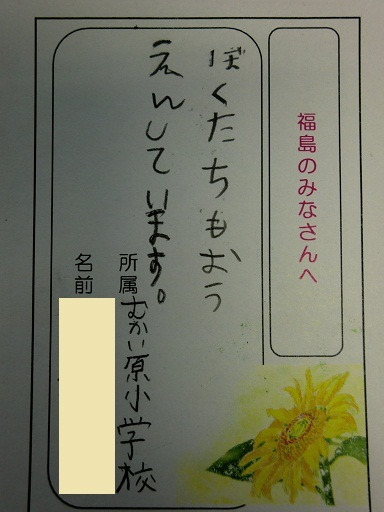 福島のみなさんへ
ぼくたちもおう
えんしています。
所属むかい原小学校
名前